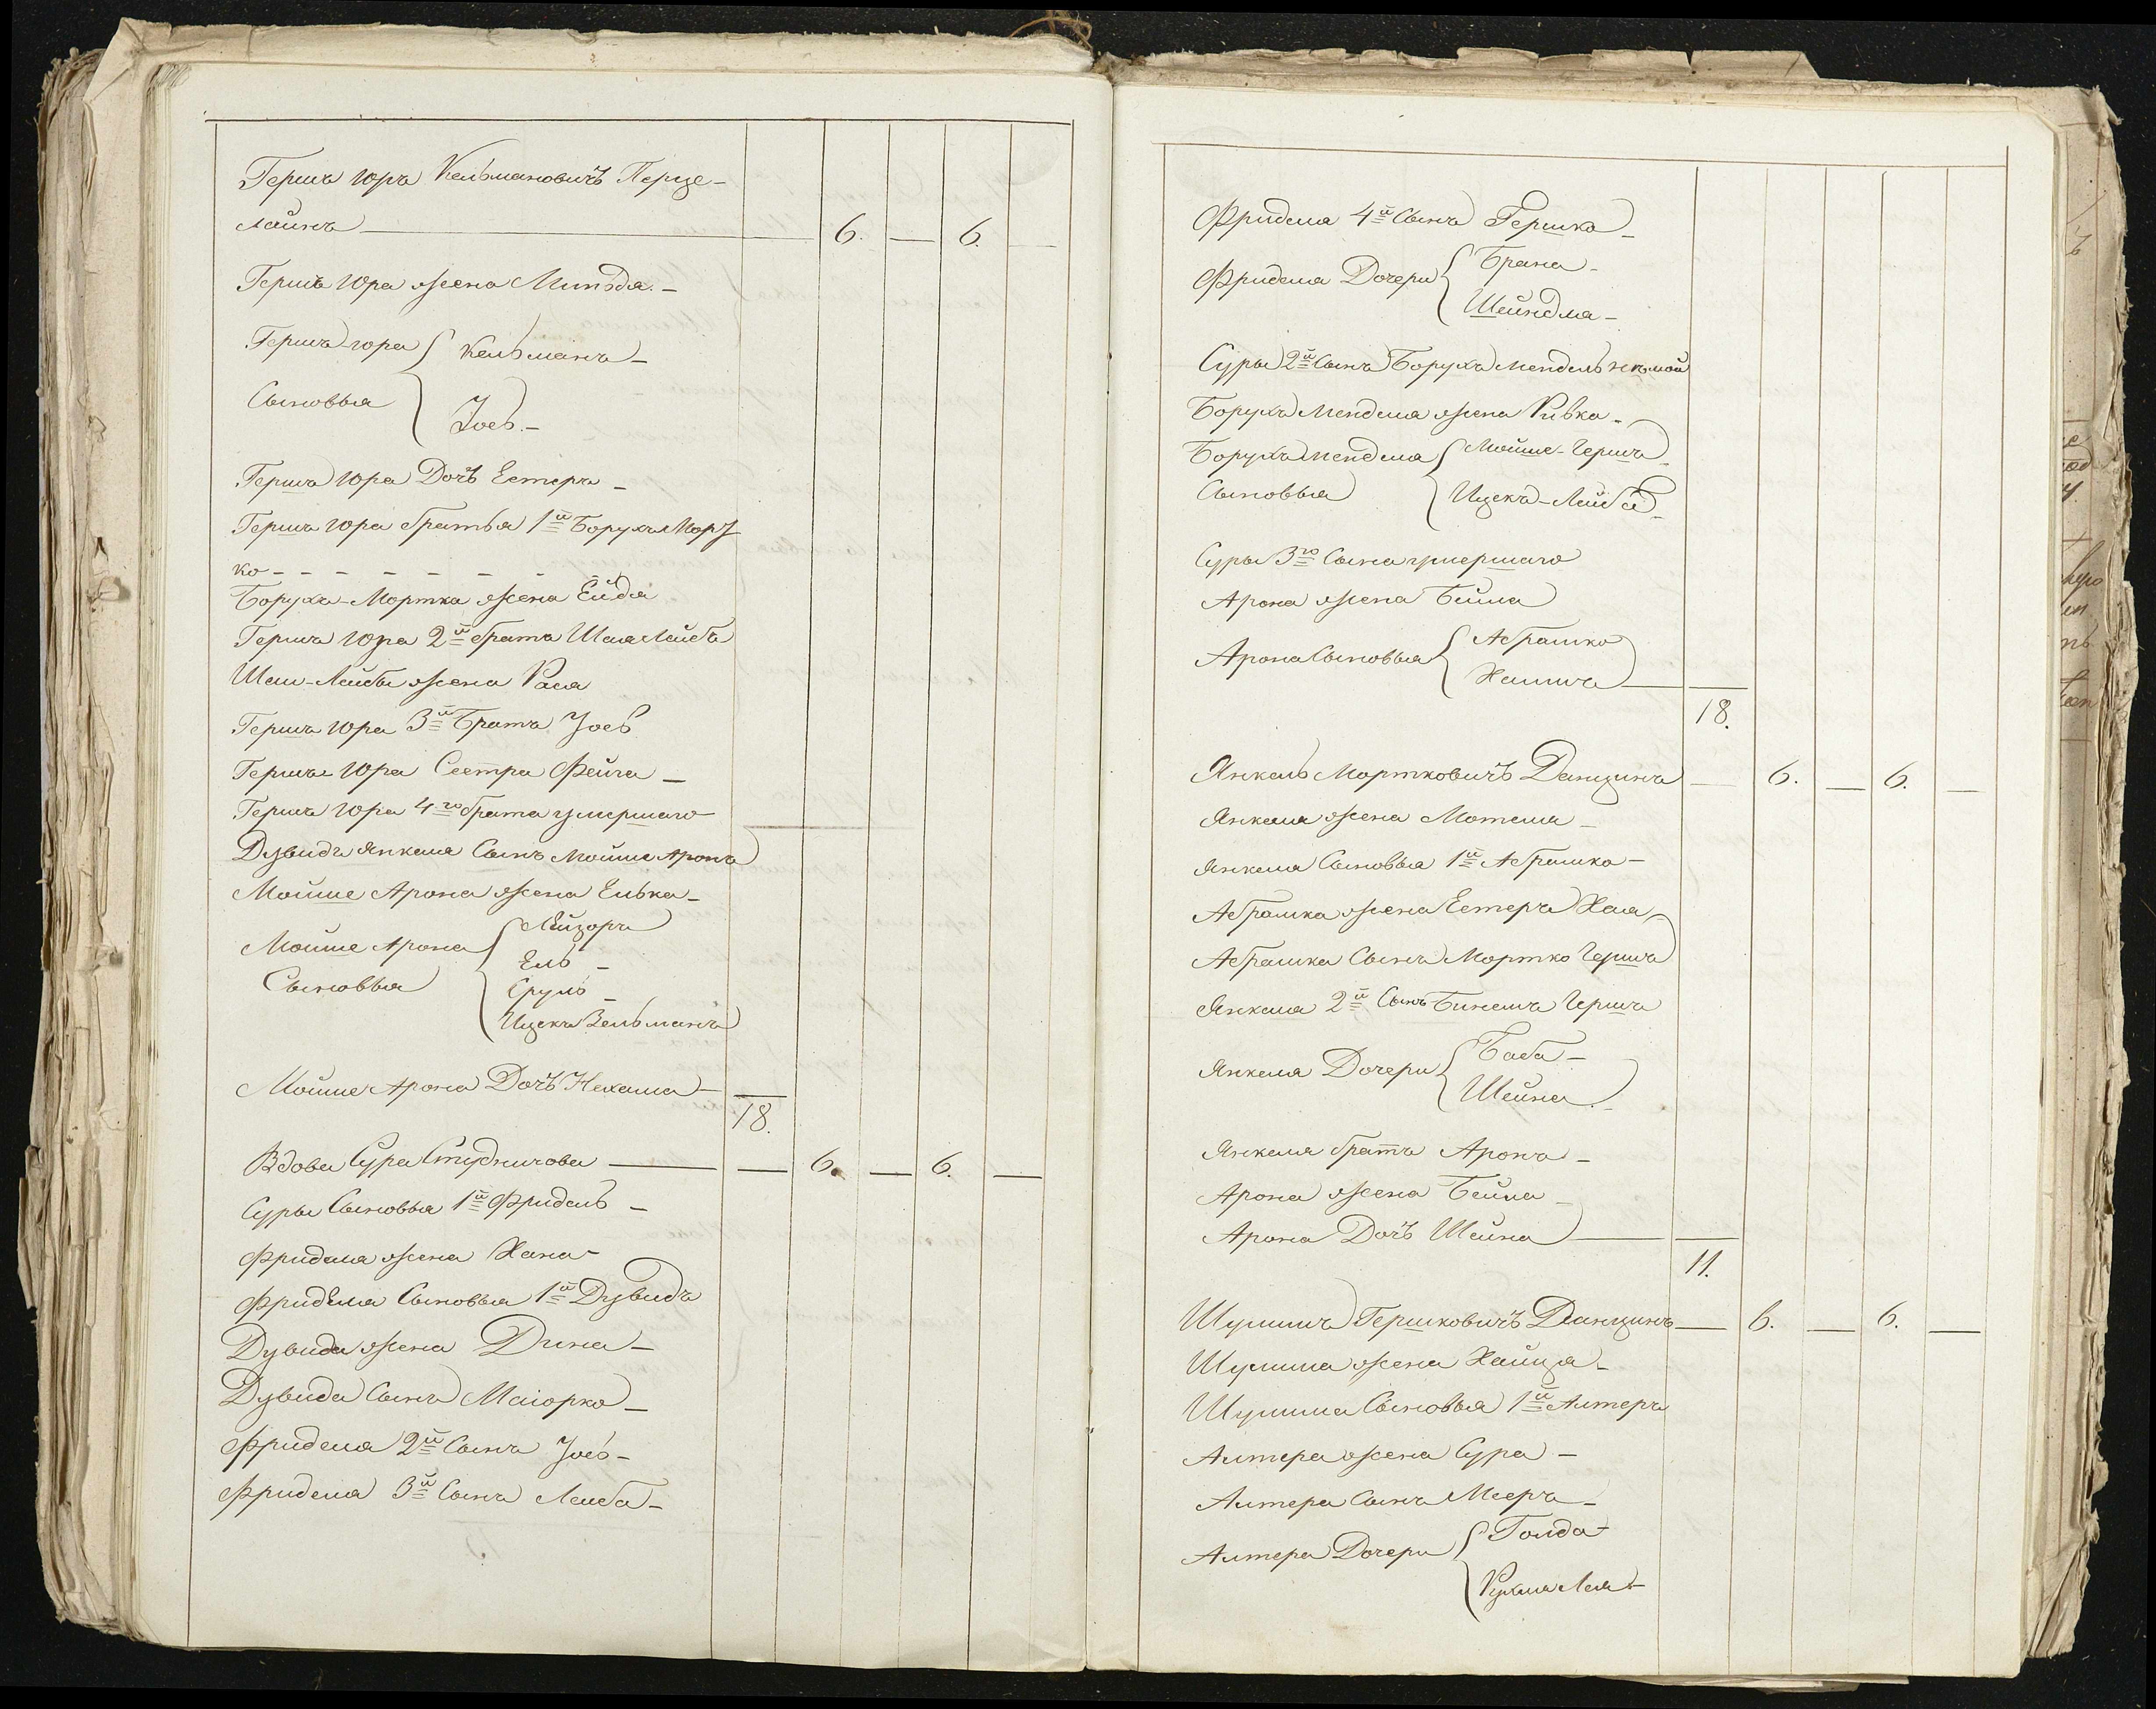 Гершъ Юръ Кельмановичъ Перце-
лайнъ — 6. — 6. —
Гершъ Юра жена Миньдя. —
Гершъ-юра Кельманъ —
Сыновья Іосъ. —
Гершъ Юра Дочь Естеръ —
Гершъ Юра братья 1й Борухъ Морт
ко - - - - - - - -
Боруха-Мортка жена Ейдя
Гершъ Юра 2й братъ Шая Лейба
Шаи-Лейбы жена Рася
Гершъ Юра 3й Братъ Іосъ
Гершъ Юра Сестра Фейга —
Гершъ Юра 4го брата умершаго
Дувидъ Янкеля Сынъ Мойше Аронъ
Мойше Арона жена Елька —
Мойше Арона Лейзоръ
Ель —
Сыновья Сруль —
Ицекъ Зельманъ
Мойше Арона Дочь Нехама —
18.
Вдова Сура Студничова — 6. — 6. —
Суры Сыновья 1й Фридель —
Фриделя жена Хана —
Фриделя Сыновья 1й Дувидъ
Дувида жена Дина —
Дувида Сынъ Маіорко —
Фриделя 2й Сынъ Іосъ —
Фриделя 3й Сынъ Лейба —
Фриделя 4й Сынъ Гершко —
Фриделя Дочери Брана —
Шейндля —
Суры 2й Сынъ Борухъ Мендель нѣмой
Борухъ Менделя жена Ривка —
Борухъ Менделя Мойше-Гершъ —
Сыновья Ицекъ-Лейба —
Суры 3го Сына умершаго
Арона жена Бейла
Арона Сыновья Абрамко
Хаимъ —
18.
Янкель Мортковичъ Данцинъ — 6. — 6. —
Янкеля жена Мотеля —
Янкеля Сыновья 1й Абрамко —
Абрамка жена Естеръ Хая —
Абрамка Сынъ Мортко Гершъ
Янкеля 2й Сынъ Бинемъ Гершъ
Янкеля Дочери Баба —
Шейна. —
Янкеля братъ Аронъ —
Арона жена Бейла —
Арона Дочь Шейна —
11.
Шулимъ Гершковичъ Данцинъ — 6. — 6. —
Шулима жена Хайця —
Шулима Сыновья 1й Алтеръ
Алтера жена Сура —
Алтера Сынъ Мееръ —
Алтера Дочери Голда —
Рухля Лея —